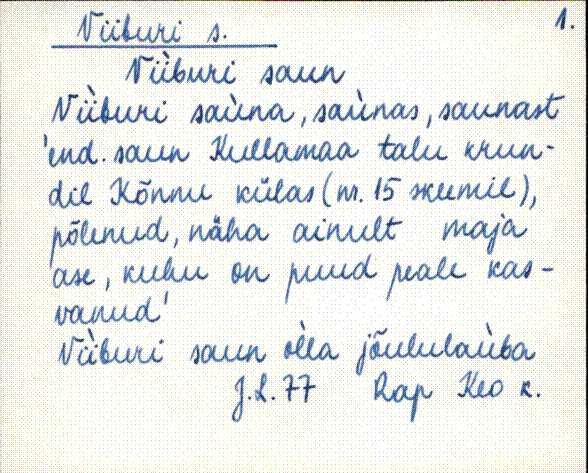 Viiburi s.
1.
Vìiburi saun
Vìiburi saùna, saùnas, saunast
'end. saun Kullamaa talu krun-
dil Kõnnu külas (nr. 15 skeemil),
põlenud, näha ainult maja
ase, kuhu on puud peale kas-
vanud'
Vìiburi saun òlla jõululaùba
J.L. 77 Rap Keo k.